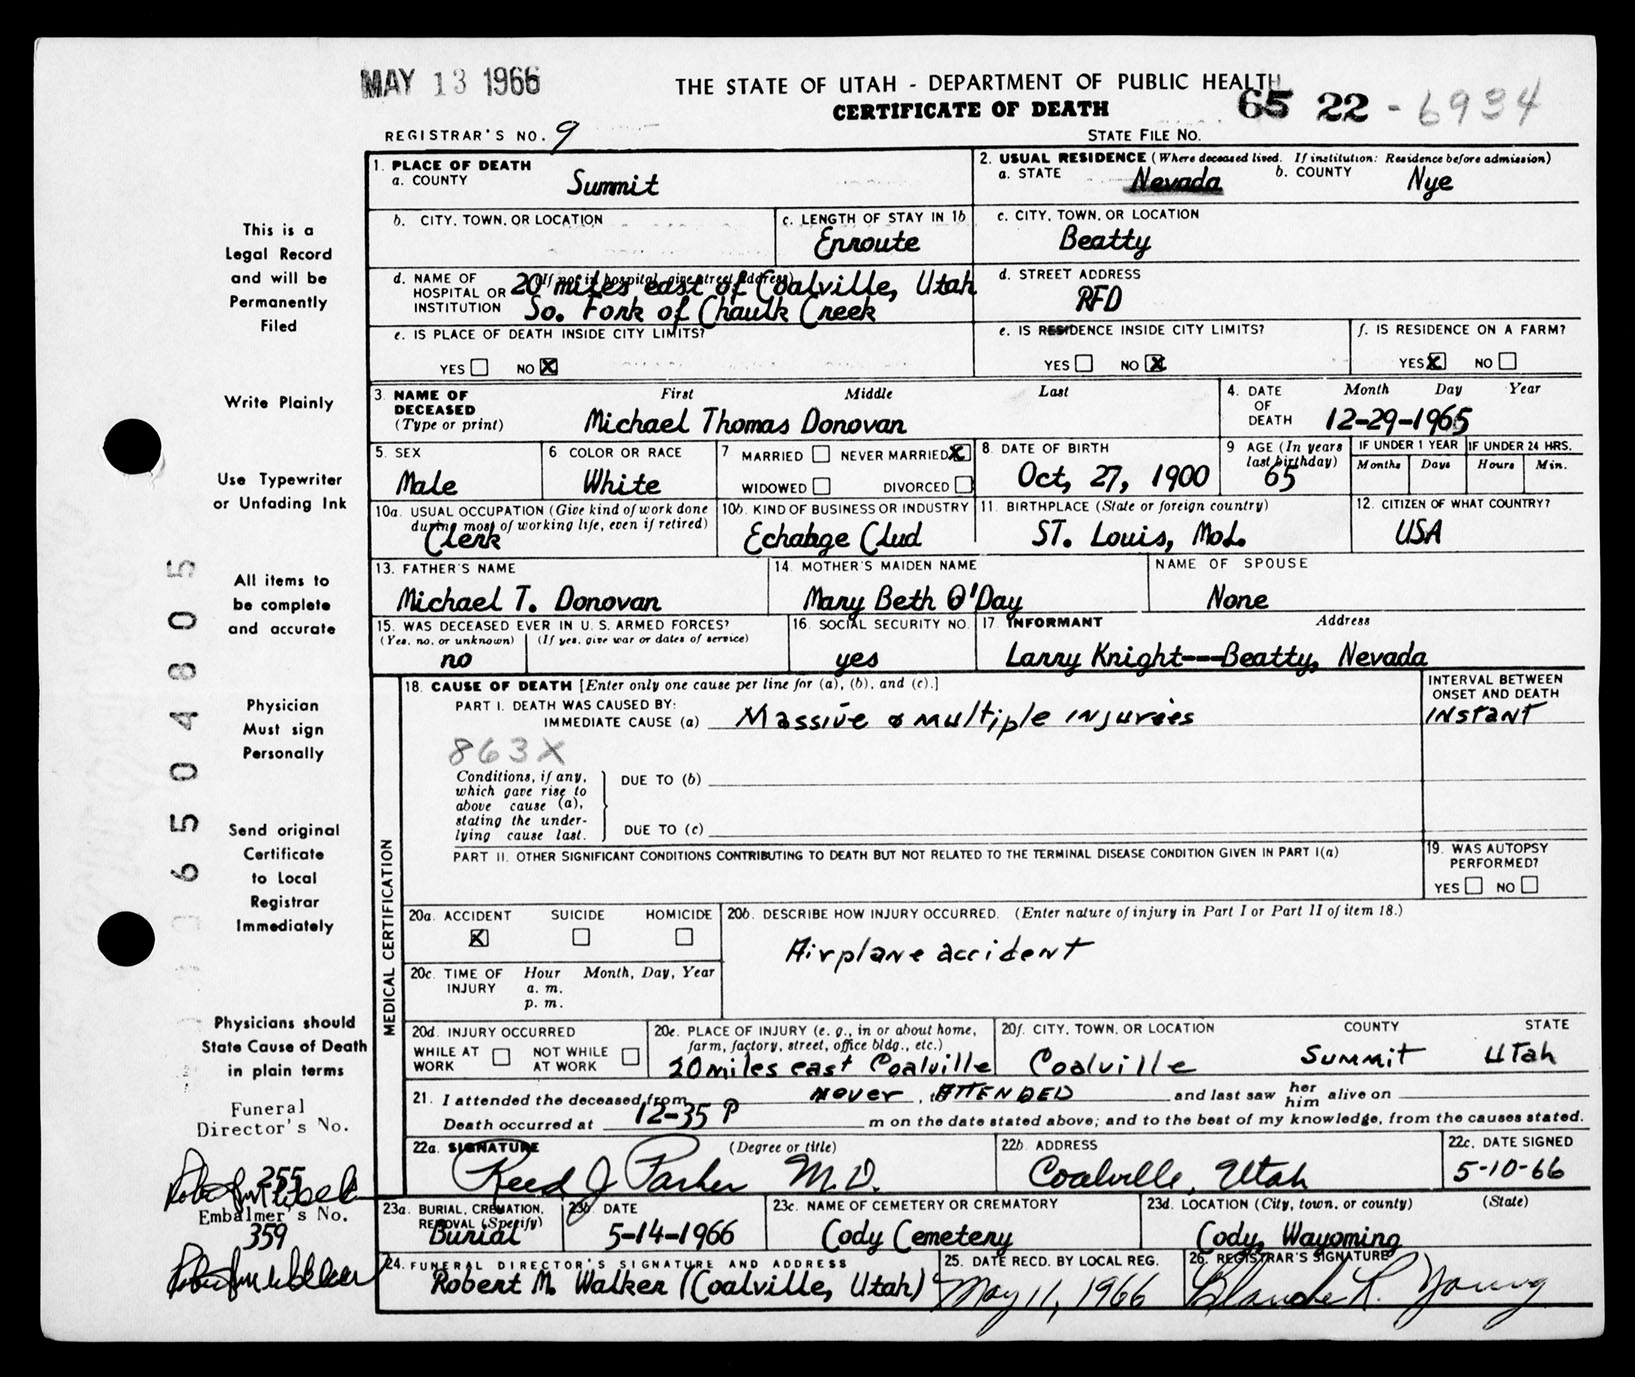 MAY 13 1966
THE STATE OF UTAH - DEPARTMENT OF PUBLIC HEALTH
CERTIFICATE OF DEATH
65 22 - 6934
REGISTRAR'S NO. 9
STATE FILE NO.
1. PLACE OF DEATH
a. COUNTY Summit
2. USUAL RESIDENCE (Where deceased lived. If institution: Residence before admission)
a. STATE Nevada b. COUNTY Nye
b. CITY, TOWN, OR LOCATION
c. LENGTH OF STAY IN 1b
Enroute
c. CITY, TOWN, OR LOCATION
Beatty
d. NAME OF HOSPITAL OR INSTITUTION (If not in hospital, give street address)
20 miles east of Coalville, Utah
So. Fork of Chaulk Creek
d. STREET ADDRESS
RFD
e. IS PLACE OF DEATH INSIDE CITY LIMITS?
YES NO X
e. IS RESIDENCE INSIDE CITY LIMITS?
YES NO X
f. IS RESIDENCE ON A FARM?
YES X NO
3. NAME OF DECEASED (Type or print) First Middle Last
Michael Thomas Donovan
4. DATE OF DEATH Month Day Year
12-29-1965
5. SEX
Male
6 COLOR OR RACE
White
7 MARRIED NEVER MARRIED X
WIDOWED DIVORCED
8 DATE OF BIRTH
Oct, 27, 1900
9 AGE (In years last birthday)
65
IF UNDER 1 YEAR
Months Days
IF UNDER 24 HRS.
Hours Min.
10a. USUAL OCCUPATION (Give kind of work done during most of working life, even if retired)
Clerk
10b. KIND OF BUSINESS OR INDUSTRY
Echabge Clud
11. BIRTHPLACE (State or foreign country)
ST. Louis, MoL.
12. CITIZEN OF WHAT COUNTRY?
USA
13. FATHER'S NAME
Michael T. Donovan
14. MOTHER'S MAIDEN NAME
Mary Beth O'Day
NAME OF SPOUSE
None
15. WAS DECEASED EVER IN U. S. ARMED FORCES?
(Yes, no, or unknown) (If yes, give war or dates of service)
no
16. SOCIAL SECURITY NO.
yes
17 INFORMANT Address
Larry Knight---Beatty, Nevada
18. CAUSE OF DEATH [Enter only one cause per line for (a), (b), and (c).]
PART I. DEATH WAS CAUSED BY:
IMMEDIATE CAUSE (a) Massive & multiple injuries
INTERVAL BETWEEN ONSET AND DEATH
INSTANT
863X
Conditions, if any, which gave rise to above cause (a), stating the underlying cause last.
DUE TO (b)
DUE TO (c)
PART II. OTHER SIGNIFICANT CONDITIONS CONTRIBUTING TO DEATH BUT NOT RELATED TO THE TERMINAL DISEASE CONDITION GIVEN IN PART I(a)
19. WAS AUTOPSY PERFORMED?
YES NO
MEDICAL CERTIFICATION
20a. ACCIDENT SUICIDE HOMICIDE
X
20b. DESCRIBE HOW INJURY OCCURRED. (Enter nature of injury in Part I or Part II of item 18.)
Airplane accident
20c. TIME OF INJURY Hour Month, Day, Year
a. m.
p. m.
20d. INJURY OCCURRED
WHILE AT WORK NOT WHILE AT WORK
20e. PLACE OF INJURY (e. g., in or about home, farm, factory, street, office bldg., etc.)
20 miles east Coalville
20f. CITY, TOWN, OR LOCATION COUNTY STATE
Coalville Summit Utah
21. I attended the deceased from never, to ATTENDED and last saw her him alive on
Death occurred at 12-35 P m on the date stated above; and to the best of my knowledge, from the causes stated.
22a. SIGNATURE (Degree or title)
Reed J Parker M.D.
22b. ADDRESS
Coalville, Utah
22c. DATE SIGNED
5-10-66
23a. BURIAL, CREMATION, REMOVAL (Specify)
Burial
23b. DATE
5-14-1966
23c. NAME OF CEMETERY OR CREMATORY
Cody Cemetery
23d. LOCATION (City, town, or county) (State)
Cody, Wayoming
24. FUNERAL DIRECTOR'S SIGNATURE AND ADDRESS
Robert M. Walker (Coalville, Utah)
25. DATE RECD. BY LOCAL REG.
May 11, 1966
26. REGISTRAR'S SIGNATURE
Blanche R. Young
This is a
Legal Record
and will be
Permanently
Filed
Write Plainly
Use Typewriter
or Unfading Ink
All items to
be complete
and accurate
Physician
Must sign
Personally
Send original
Certificate
to Local
Registrar
Immediately
Physicians should
State Cause of Death
in plain terms
Funeral
Director's No.
255
Embalmer's No.
359
6504805